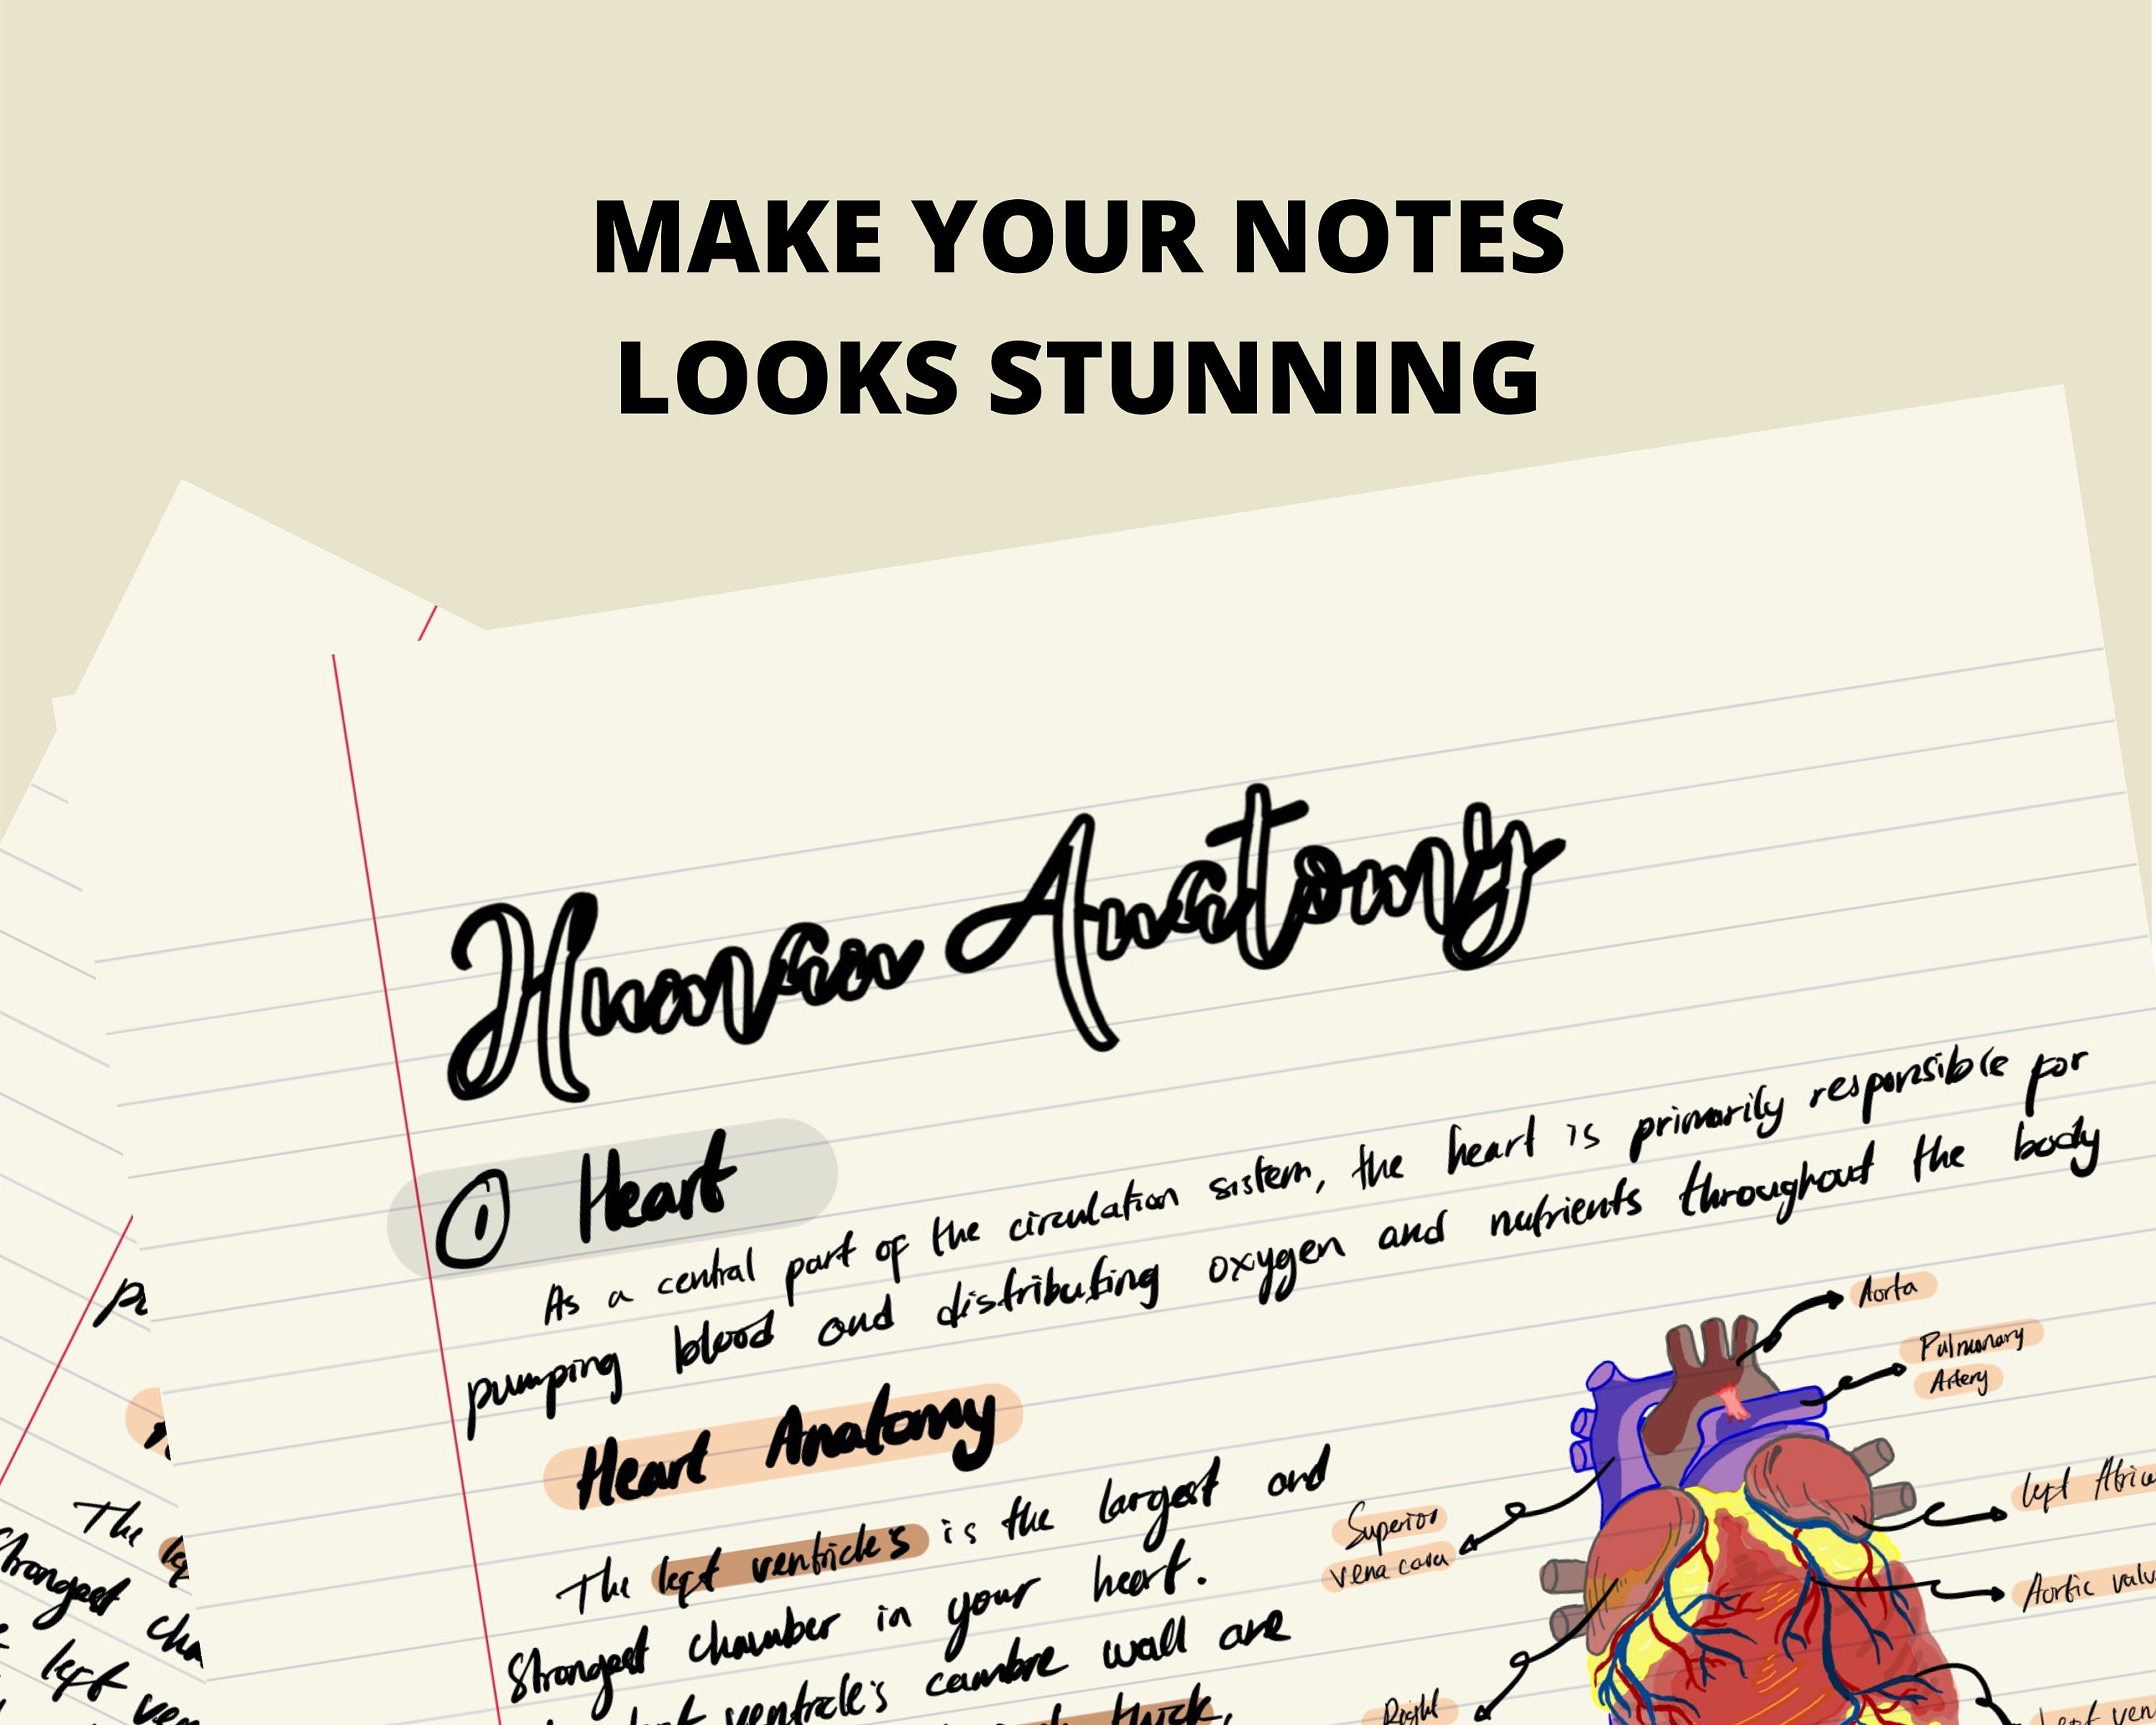 MAKE YOUR NOTES
LOOKS STUNNING
Human Anatomy
① Heart
As a central part of the circulation sistem, the heart is primarily responsible for
pumping blood and distributing oxygen and nutrients throughout the body
Heart Anatomy
The left ventricle's is the largest and
Strongest chamber in your heart.
ventricle's cambre wall are
thick,
Aorta
Pulmonary
Artery
Superior
vena cava
left Atriu
Aortic valv
Right
Left ven
The
Strongest cha
left ven